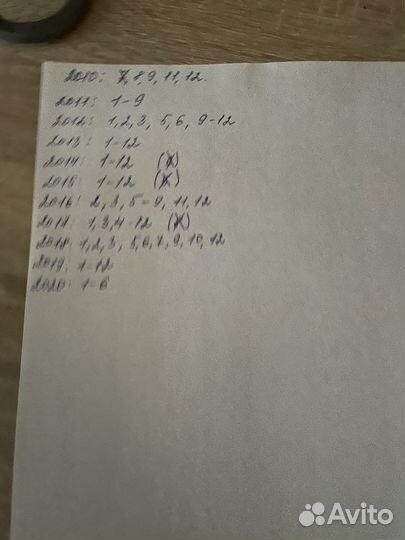 2010: 7,8,9,11,12.
2011: 1-9
2012: 1,2,3, 5,6, 9-12
2013: 1-12
2014: 1-12 (к)
2015: 1-12 (к)
2016: 2, 3, 5-9, 11,12
2017: 1,3,4-12 (к)
2018: 1,2,3, 5,6,7,9,10,12
2019: 1-12
2020: 1-6
Avito